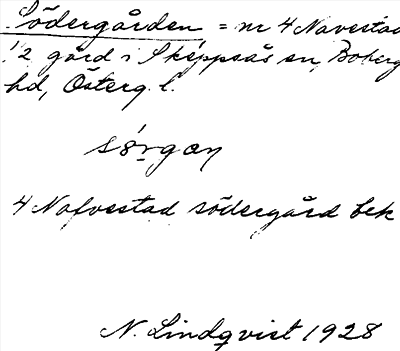 Södergården = nr 4 Navestad
1/2 gård i Skeppsås sn, Boberg
hd, Österg. l.
sörgan
4 Nafvestad södergård bek
N. Lindqvist 1928